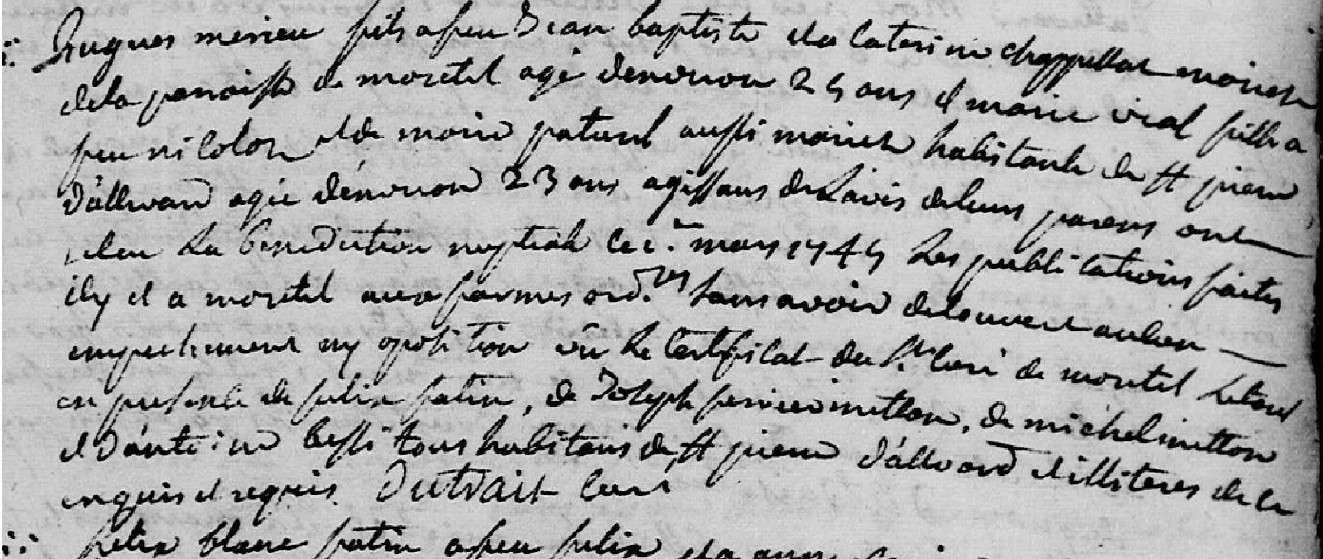 hugues merieu fils a feu Jean baptiste et a Caterine chappellat mariés
de la paroisse de moretel agé denviron 25 ans et marie vial fille a
feu nicolon et de marie paturel aussi mariés habitante de st pierre
d'allevard agée d'environ 23 ans agissans de Lavis de leurs parens ont
receu La benediction nuptiale le mars 1745 Les publications faites
icy et a moretel aux formes ord.res sans avoir decouvert aucun
empechement ny oposition vû Le Certificat du Sr Curé de moretel Letout
en presence de felix patin, de Joseph mitton, de michel mitton
et d'antoine bessi tous habitans de st pierre d'allvard et illiteres de ce
enquis et requis. Dutrait Curé
felix blanc patin a feu felix et a